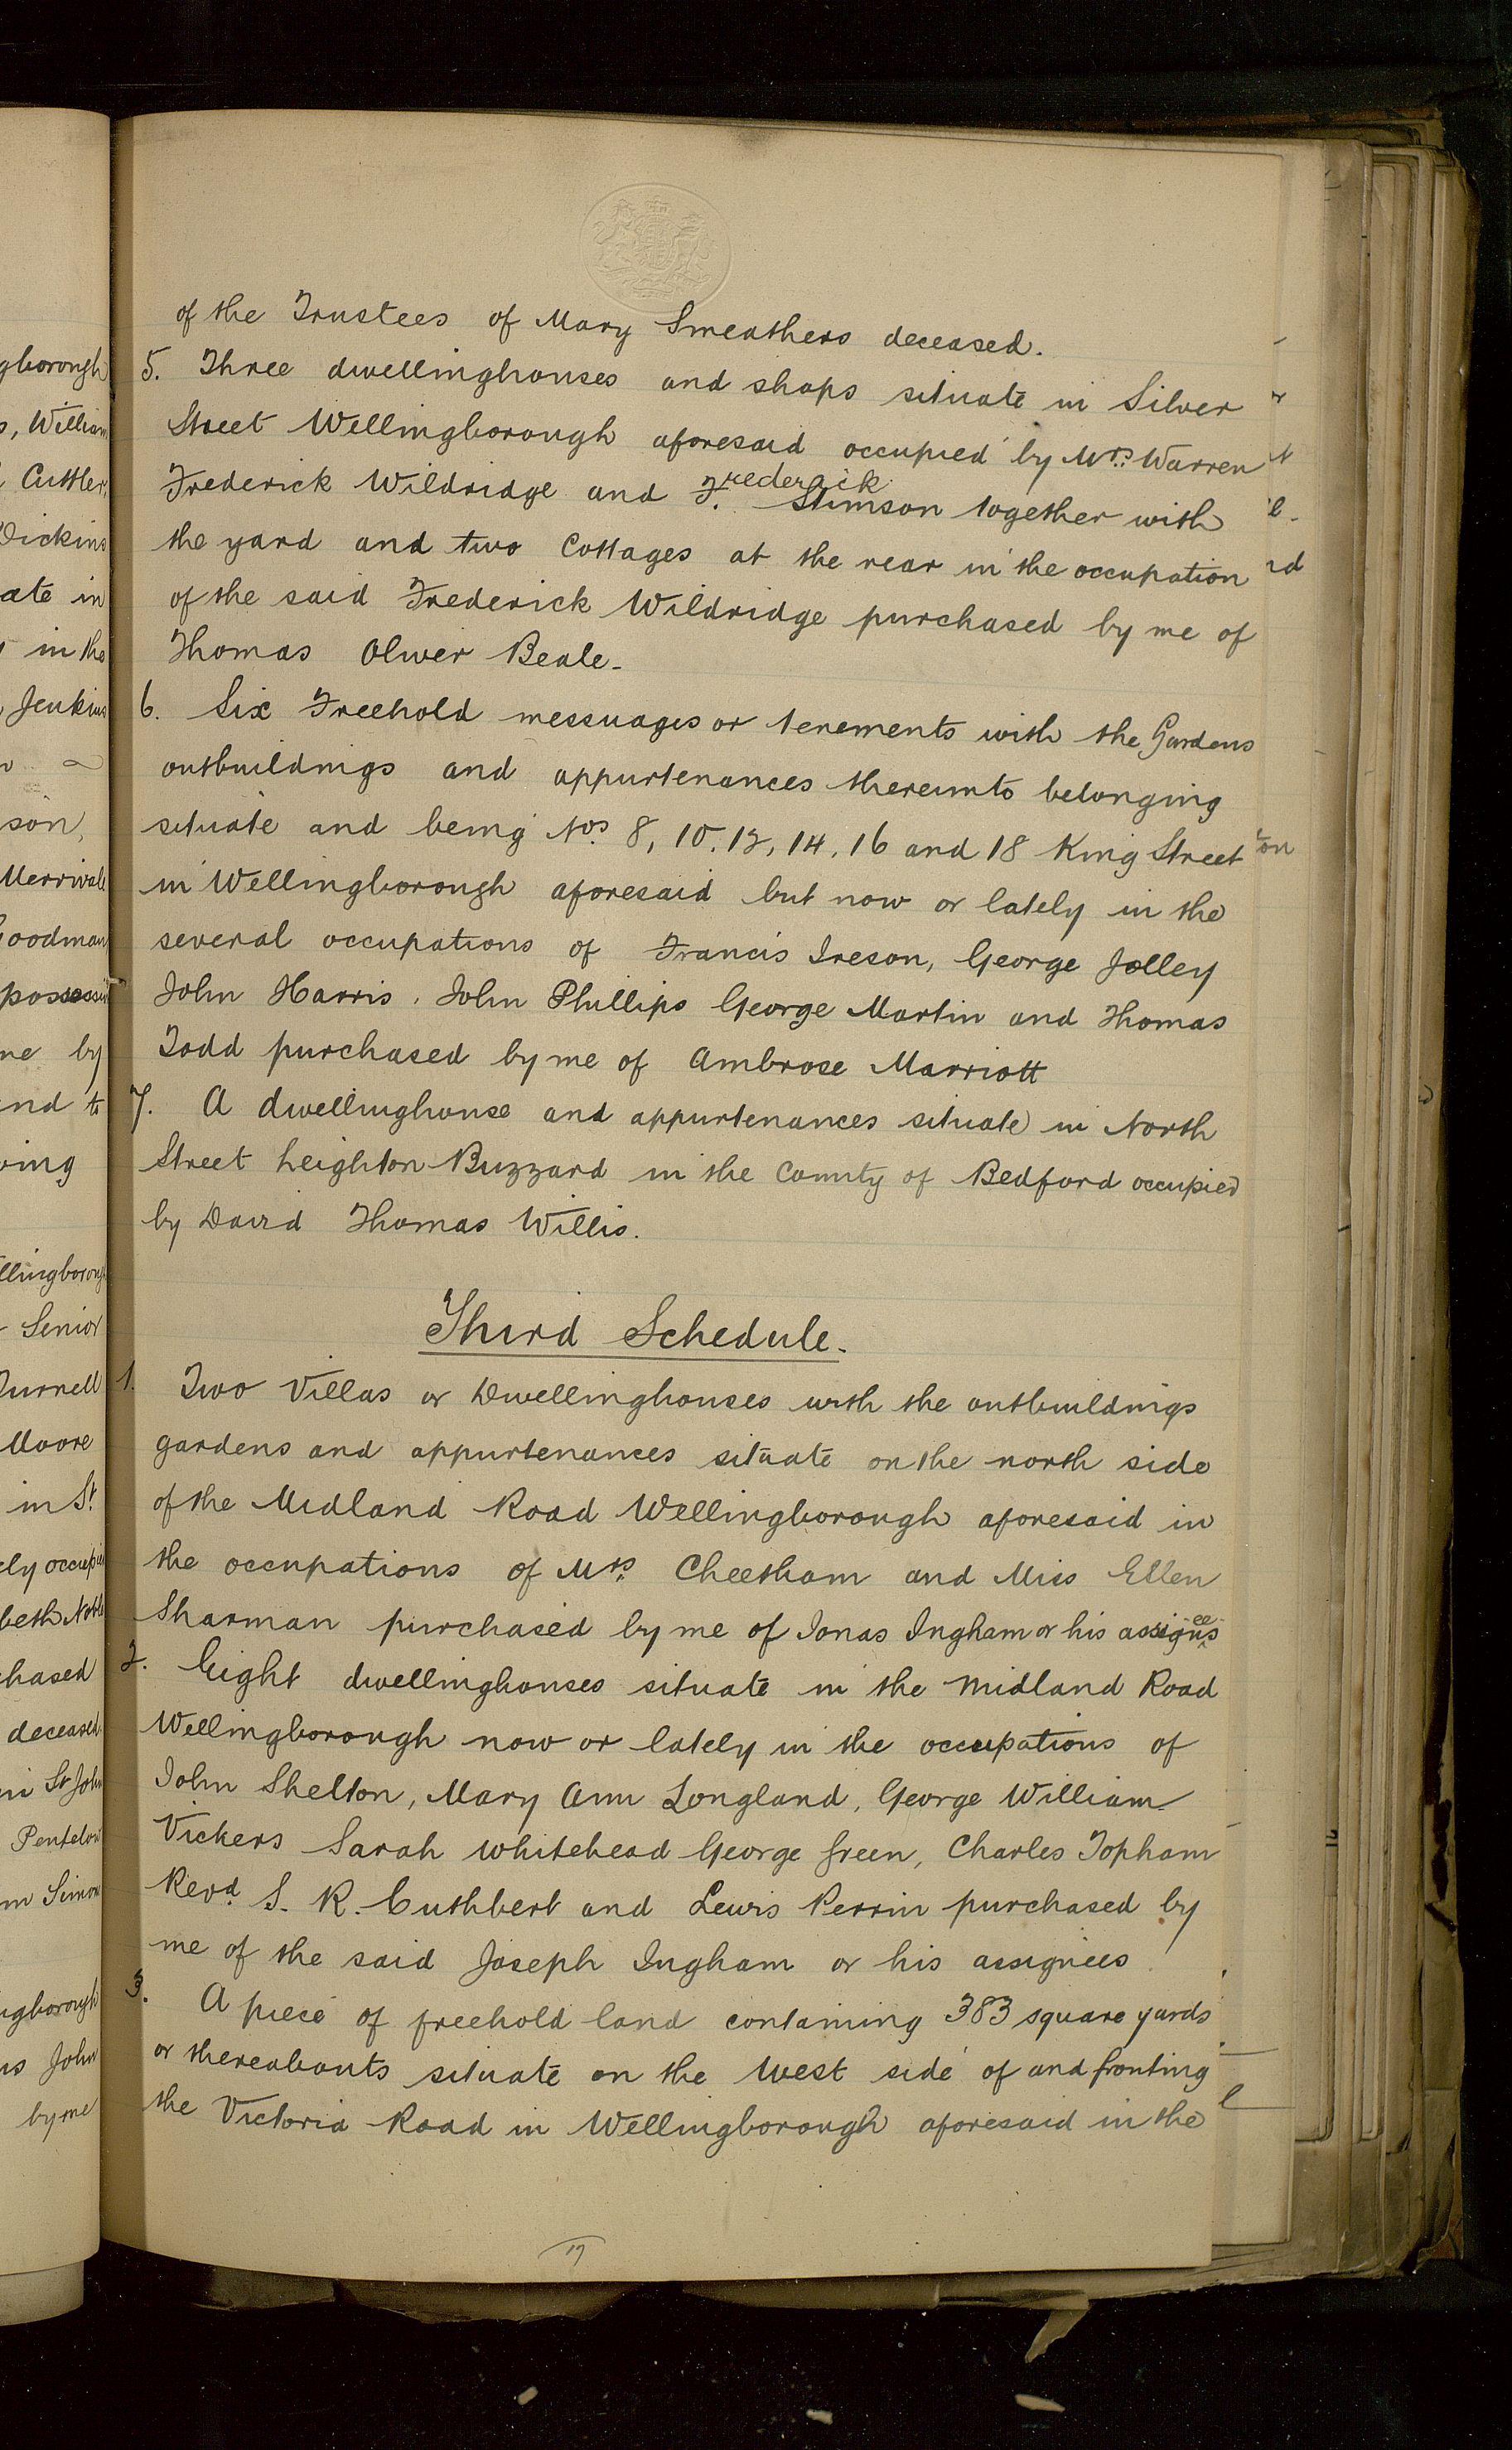 of the Trustees of Mary Smeathers deceased.
5. Three dwellinghouses and shops situate in Silver
Street Wellingborough aforesaid occupied by Mrs. Warren
Frederick Wildridge and Frederick Stimson together with
the yard and two Cottages at the rear in the occupation
of the said Frederick Wildridge purchased by me of
Thomas Oliver Beale.
6. Six Freehold messuages or tenements with the Gardens
outbuildings and appurtenances thereunto belonging
situate and being Nos. 8, 10, 12, 14, 16 and 18 King Street
in Wellingborough aforesaid but now or lately in the
several occupations of Francis Ireson, George Jolley
John Harris, John Phillips George Martin and Thomas
Todd purchased by me of Ambrose Marriott
7. A dwellinghouse and appurtenances situate in North
Street Leighton Buzzard in the County of Bedford occupied
by David Thomas Willis.
Third Schedule.
1. Two Villas or Dwellinghouses with the outbuildings
gardens and appurtenances situate on the north side
of the Midland Road Wellingborough aforesaid in
the occupations of Mrs. Cheetham and Miss Ellen
Sharman purchased by me of Jonas Ingham or his assignees
2. Eight dwellinghouses situate in the Midland Road
Wellingborough now or lately in the occupations of
John Shelton, Mary Ann Longland, George William
Vickers Sarah Whitehead George Green, Charles Topham
Revd. S. R. Cuthbert and Lewis Perrin purchased by
me of the said Joseph Ingham or his assignees
3. A piece of freehold land containing 383 square yards
or thereabouts situate on the West side of and fronting
the Victoria Road in Wellingborough aforesaid in the
17